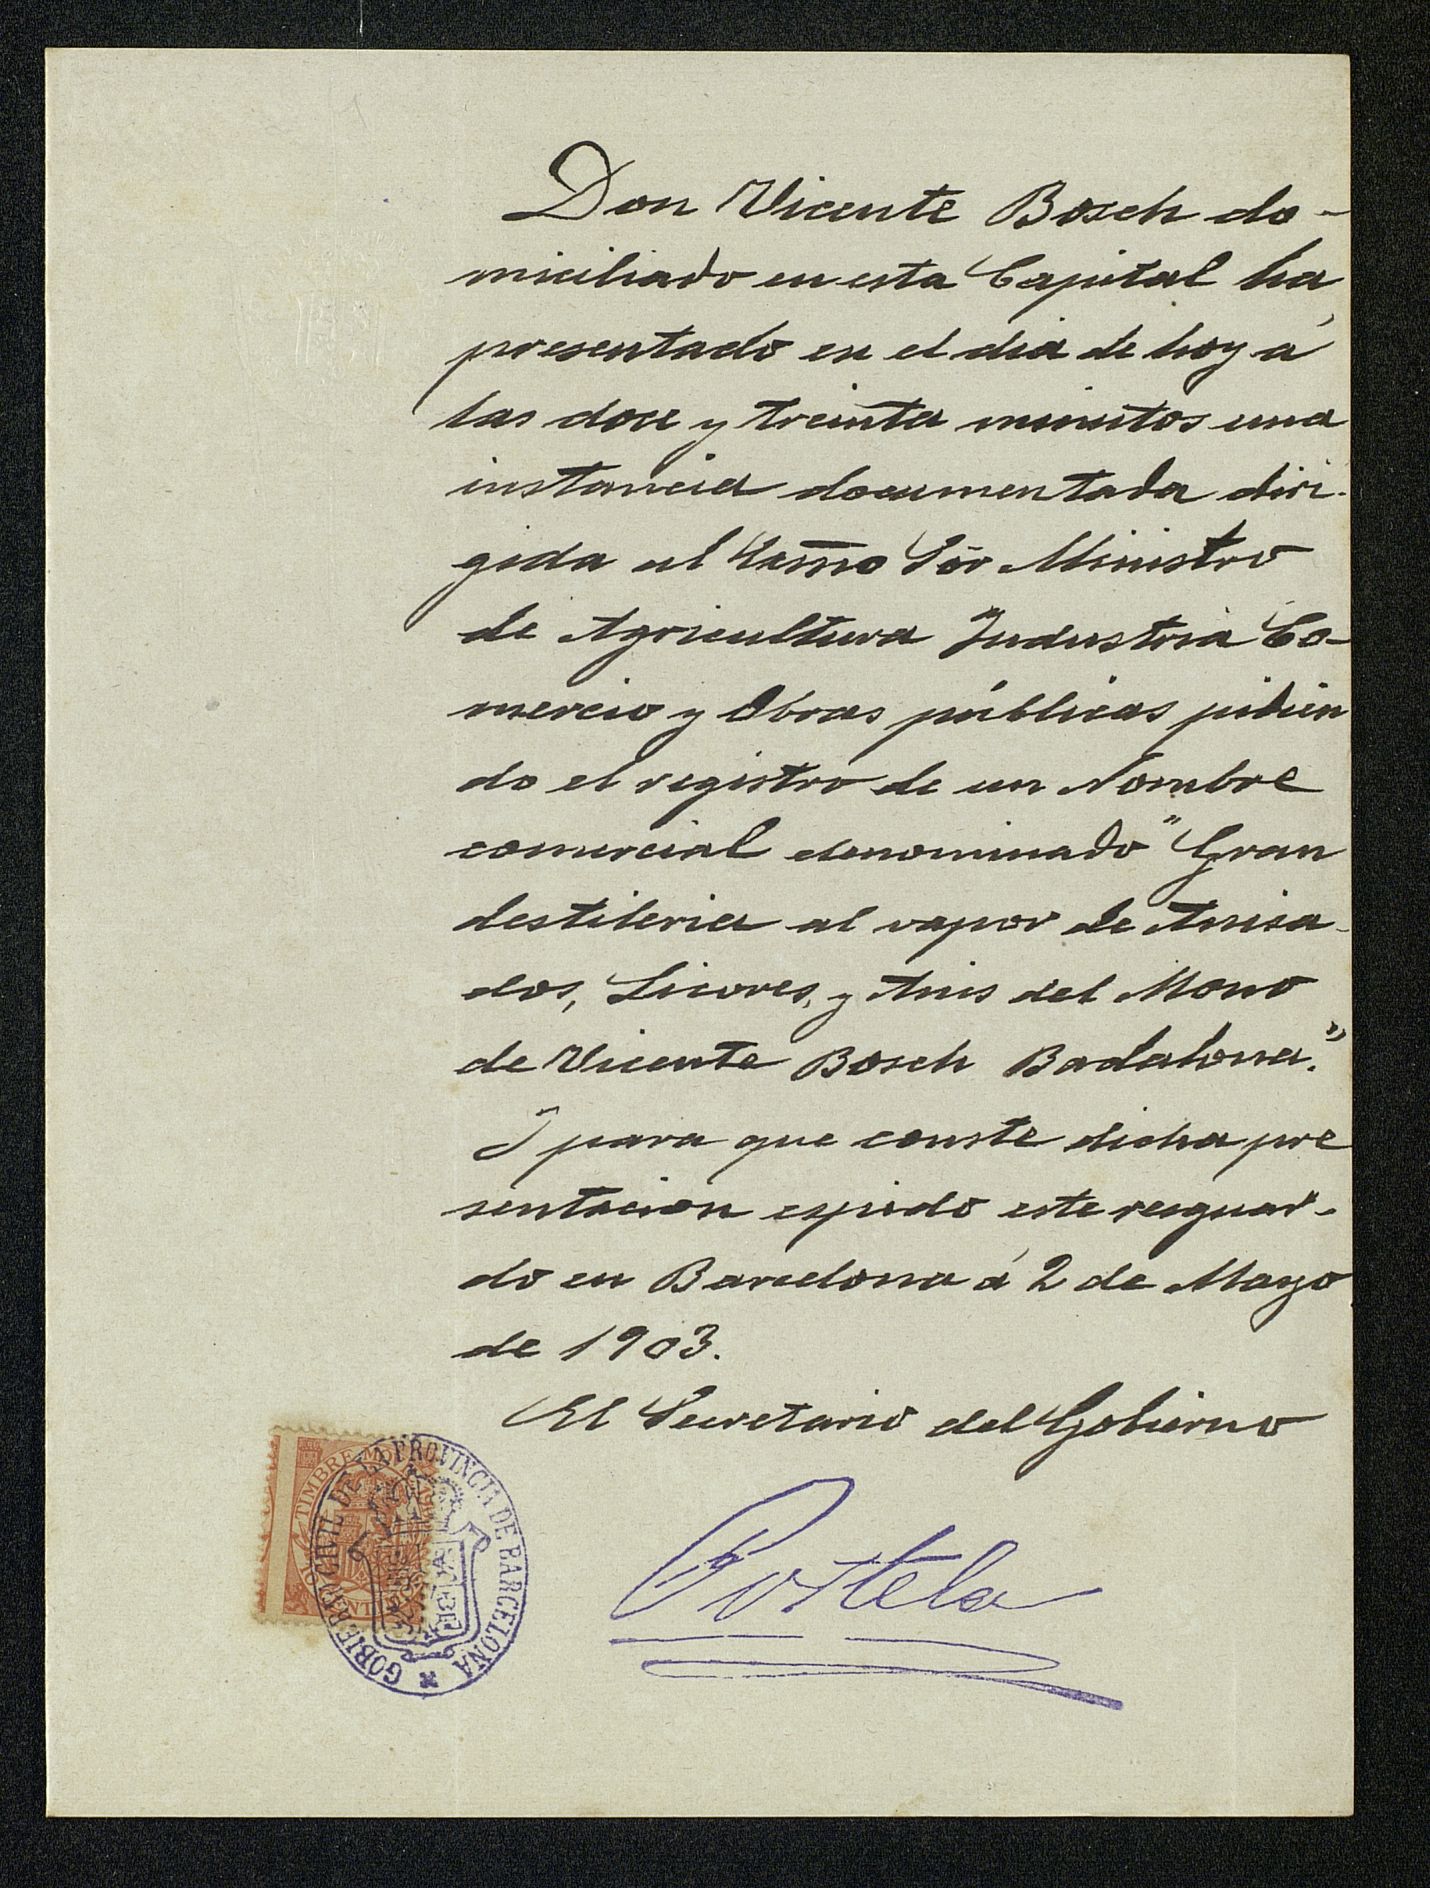 Don Vicente Bosch do-
miciliado en esta Capital ha
presentado en el dia de hoy á
las doce y treinta minutos una
instancia documentada diri-
gida al Exm̄o Sōr Ministro
de Agricultura Industria Co-
mercio y Obras públicas pidien
do el registro de un Nombre
comercial denominado "Gran
destileria al vapor de Anisa-
dos, Licores, y Anis del Mono
de Vicente Bosch Badalona."
Y para que conste dicha pre
sentacion espido este resguar-
do en Barcelona á 2 de Mayo
de 1903.
El Secretario del Gobierno
Portela
TIMBRE
GOBIERNO CIVIL DE LA PROVINCIA DE BARCELONA